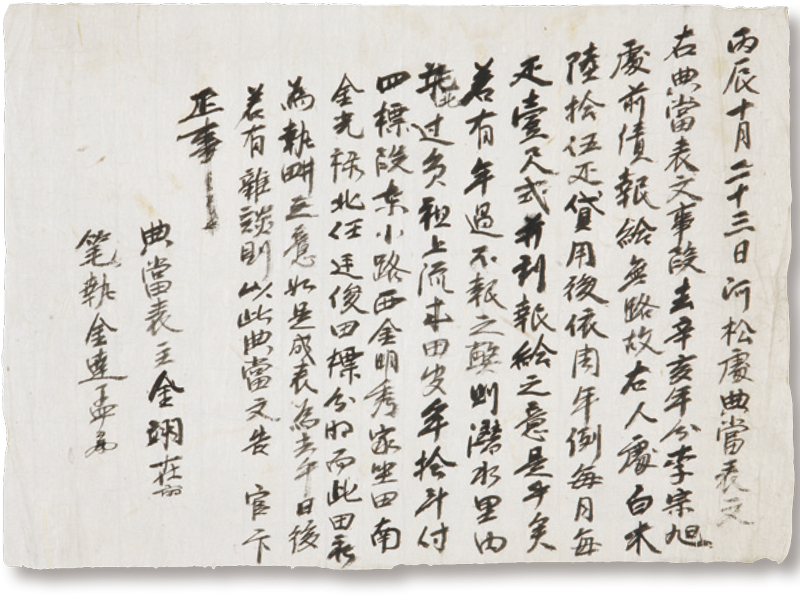 丙辰十月二十三日河松處典當表文
右典當表文事段去辛亥年分李宗旭
處前債報給無路故右人處白木
陸拾伍疋貸用後依周年例每月每
疋壹尺式並利報給之意是乎矣
若有年過不報之弊則潛水里內
租上流田年拾斗付
四標段東小路西金明秀家坐田南
金光祿北任廷俊田標分明而此田永
為執畊之意如是成表為去乎日後
若有雜談則以此典當文告官下
正事
典當表主金翊
笔執金達孟